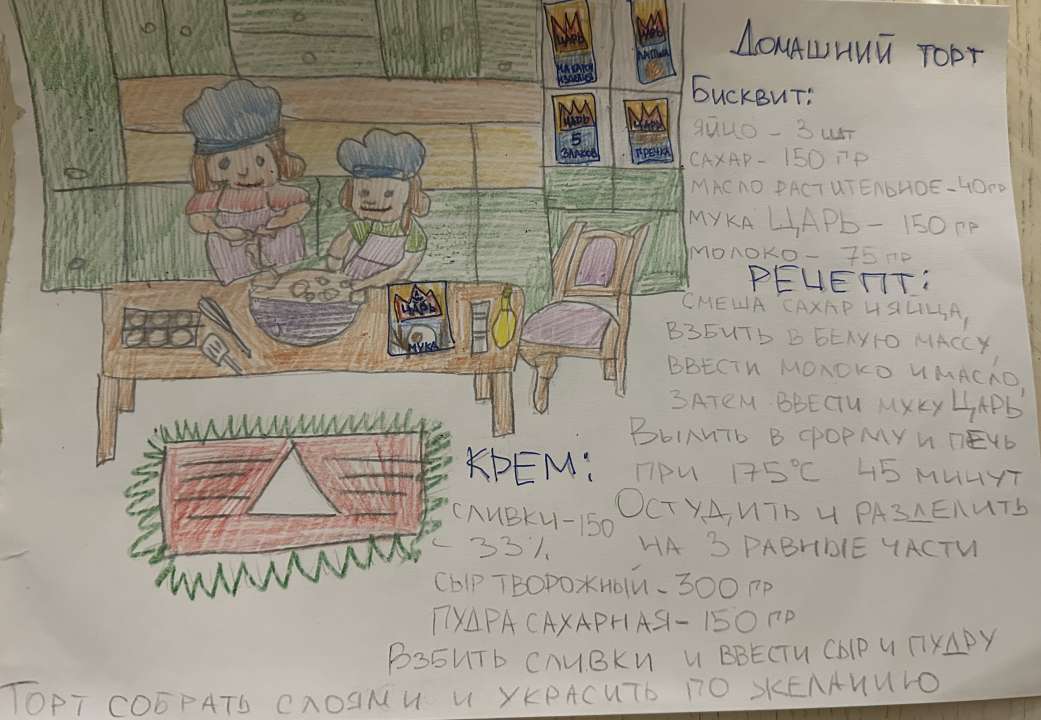 ЦАРЬ
МАКАРОН
ИЗДЕЛИЯ
ЦАРЬ
ЛАПША
ЦАРЬ
5
ЗЛАКОВ
ЦАРЬ
ГРЕЧКА
ЦАРЬ
МУКА
ДОМАШНИЙ ТОРТ
БИСКВИТ:
ЯЙЦО - 3 ШТ
САХАР - 150 ГР
МАСЛО РАСТИТЕЛЬНОЕ - 40 ГР
МУКА ЦАРЬ - 150 ГР
МОЛОКО - 75 ГР
РЕЦЕПТ:
СМЕША САХАР И ЯЙЦА,
ВЗБИТЬ В БЕЛУЮ МАССУ,
ВВЕСТИ МОЛОКО И МАСЛО,
ЗАТЕМ ВВЕСТИ МУКУ ЦАРЬ
ВЫЛИТЬ В ФОРМУ И ПЕЧЬ
ПРИ 175°С 45 МИНУТ
ОСТУДИТЬ И РАЗДЕЛИТЬ
НА 3 РАВНЫЕ ЧАСТИ
КРЕМ:
СЛИВКИ - 150
- 33%
СЫР ТВОРОЖНЫЙ - 300 ГР
ПУДРА САХАРНАЯ - 150 ГР
ВЗБИТЬ СЛИВКИ И ВВЕСТИ СЫР И ПУДРУ
ТОРТ СОБРАТЬ СЛОЯМИ И УКРАСИТЬ ПО ЖЕЛАНИЮ